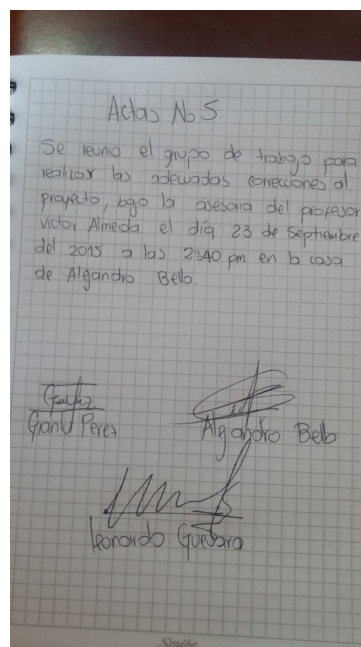 Actas No 5
Se reunio el grupo de trabajo para
realizar las adecuadas correciones al
proyecto, bajo la asesoria del profesor
Victor Almeida el día 23 de Septiembre
del 2015 a las 2:40 pm en la casa
de Alejandro Bello.
Perez
Alejandro Bello
Leonardo Guevara